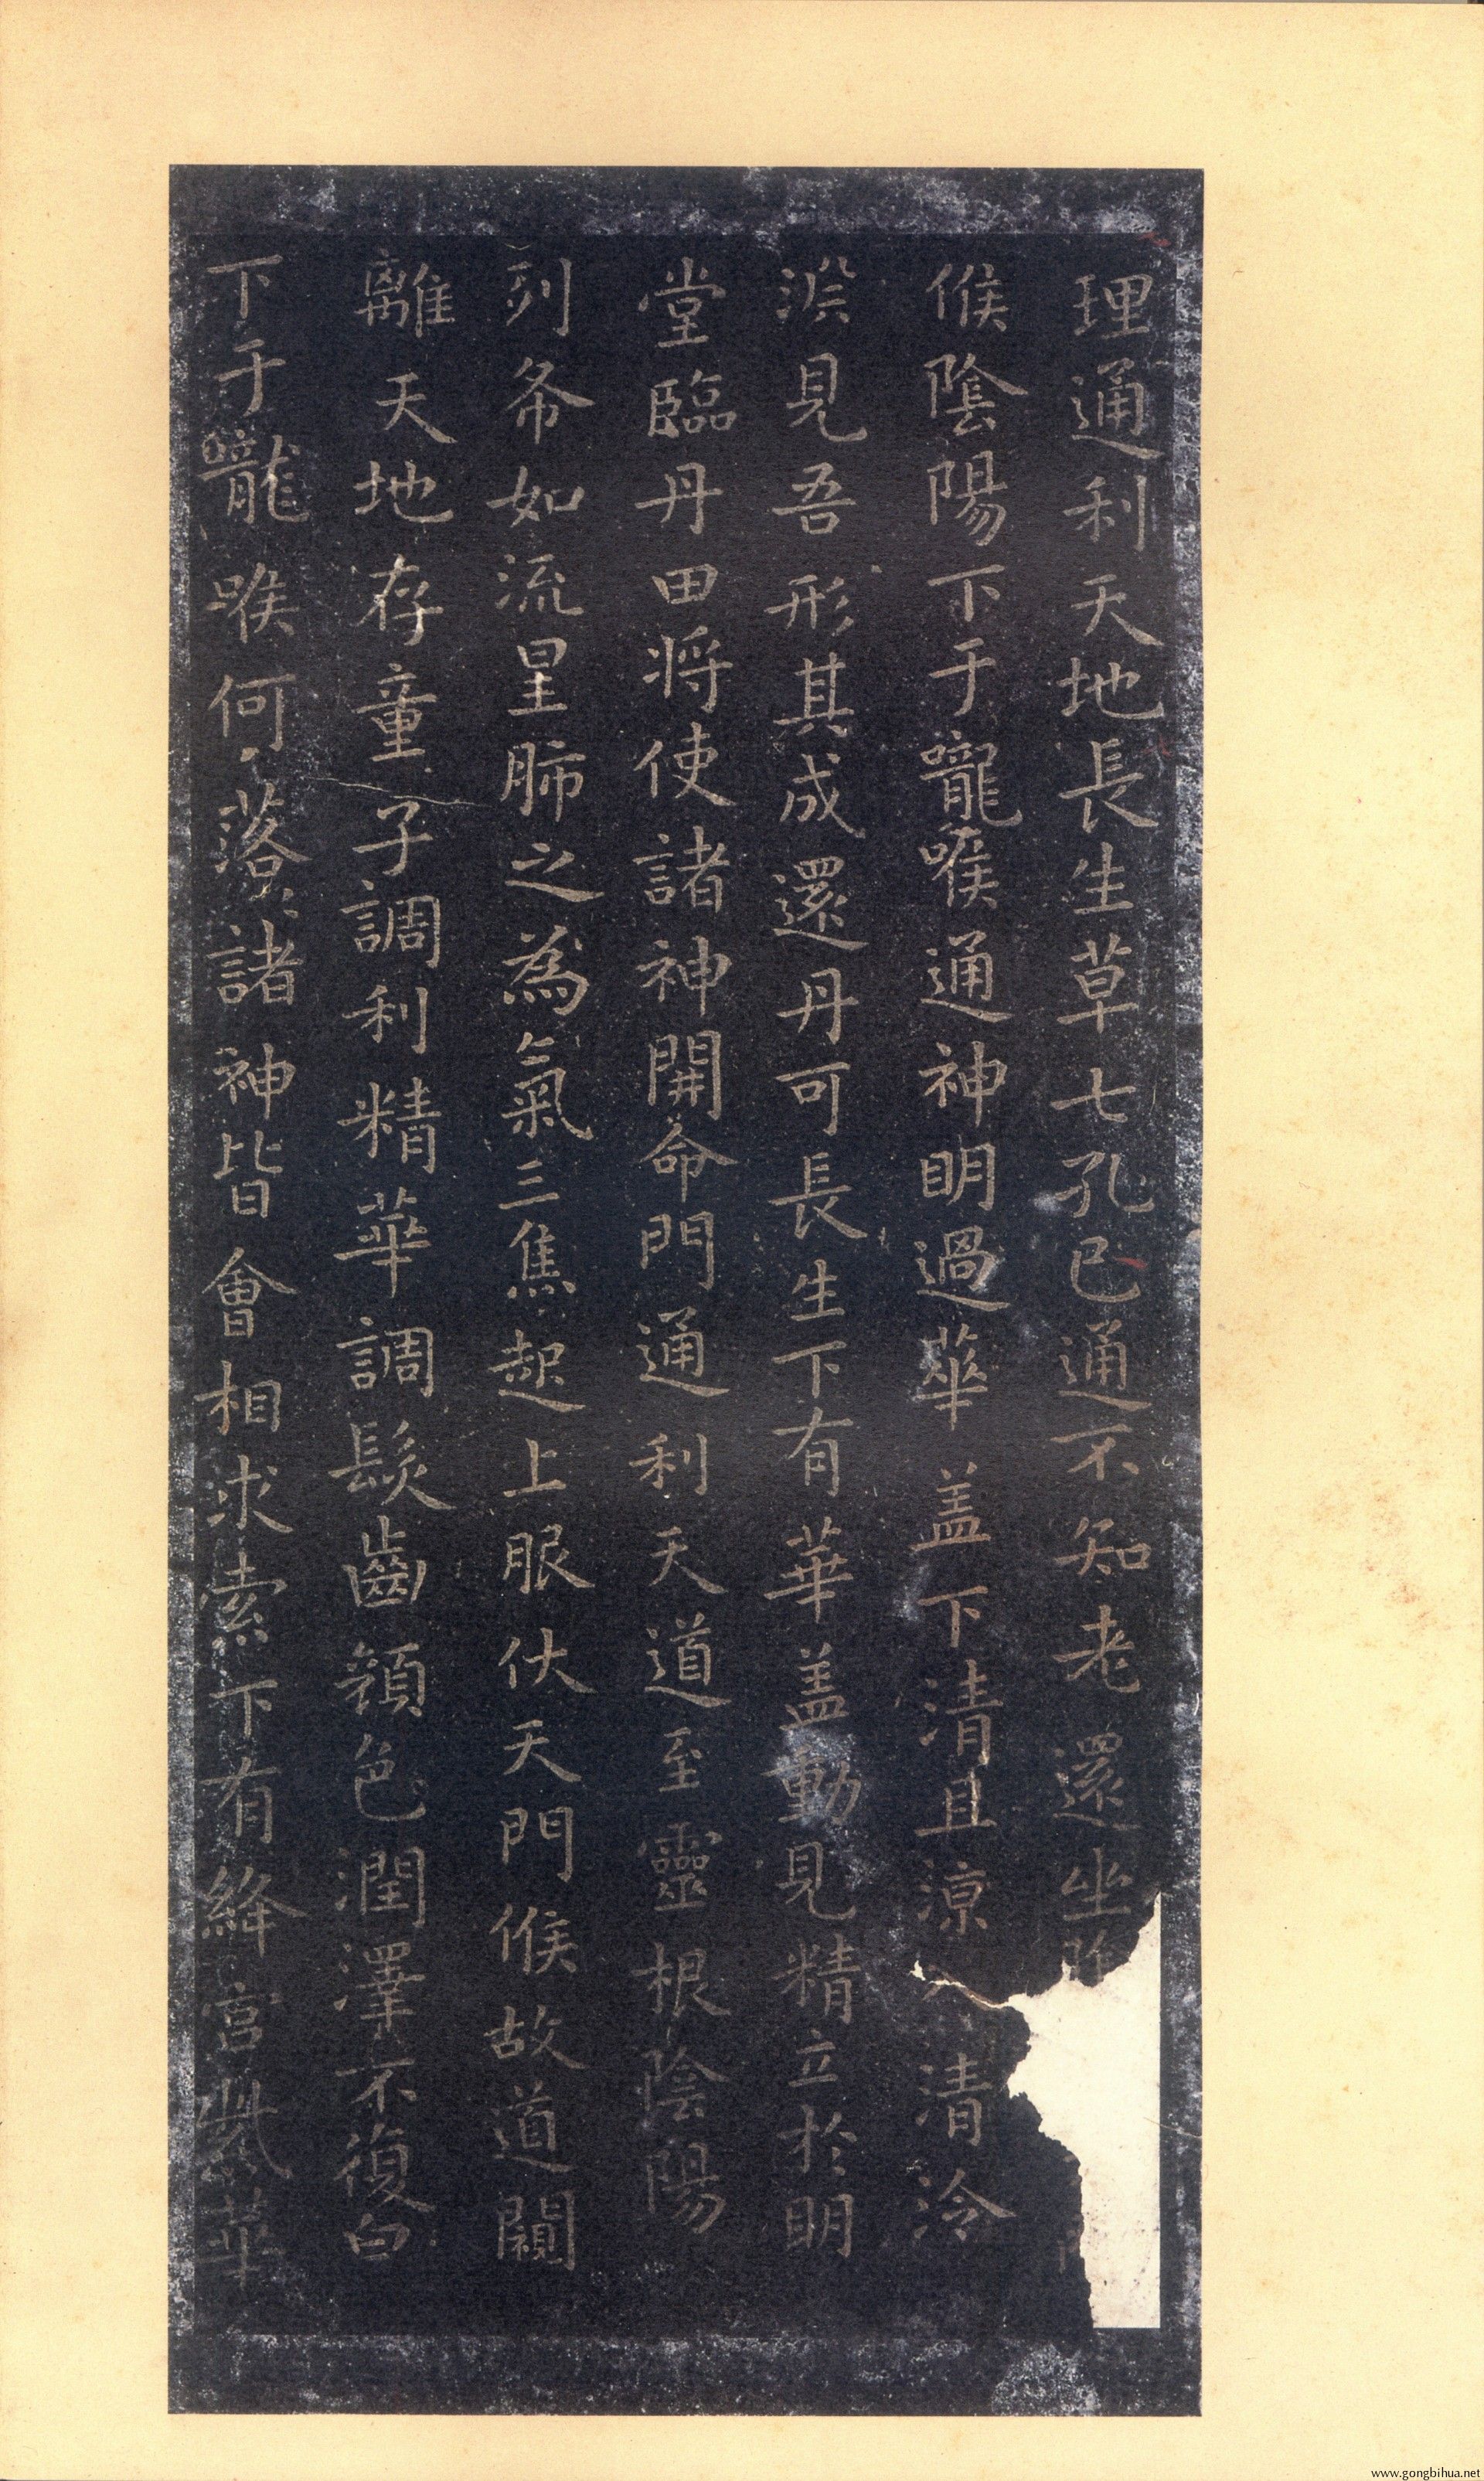 理通利天地長生草七孔已通不知老還坐
候陰陽下于嚨喉通神明過華盖下清且涼清泠
淵見吾形其成還丹可長生下有華盖動見精立於明
堂臨丹田将使諸神開命門通利天道至靈根陰陽
列布如流星肺之為氣三焦起上服伏天門候故道闚
離天地存童子調利精華調髮齒顏色潤澤不復白
下于嚨喉何落諸神皆會相求索下有絳宮紫華
www.gongbihua.net